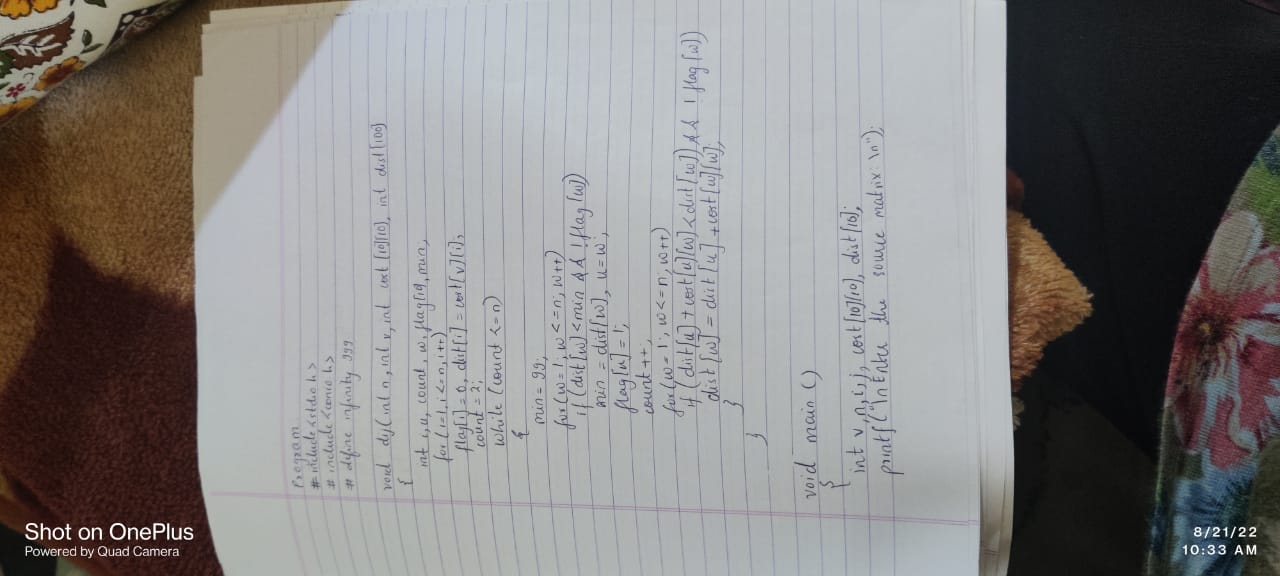 Program
# include <stdio.h>
# include <conio.h>
# define infinity 999
void dij(int n, int v, int cost [10][10], int dist [100])
{
int i, u, count, w, flag[10], min;
for (i=1, i<=n, i++)
flag[i] = 0, dist[i] = cost[v][i];
count = 2;
while (count <=n)
{
min = 99;
for (w=1; w<=n; w++)
if (dist[w] <min && !flag[w])
min = dist[w], u=w;
flag[u] = 1;
count ++;
for (w=1; w<=n; w++)
if (dist[u] + cost[u][w] < dist[w]) && ! flag [w])
dist [w] = dist [u] + cost[u][w];
}
}
void main ()
{
int v, n, i, j, cost[10][10], dist [10];
printf ("\n Enter the source matrix: \n");
Shot on OnePlus
Powered by Quad Camera
8/21/22
10:33 AM